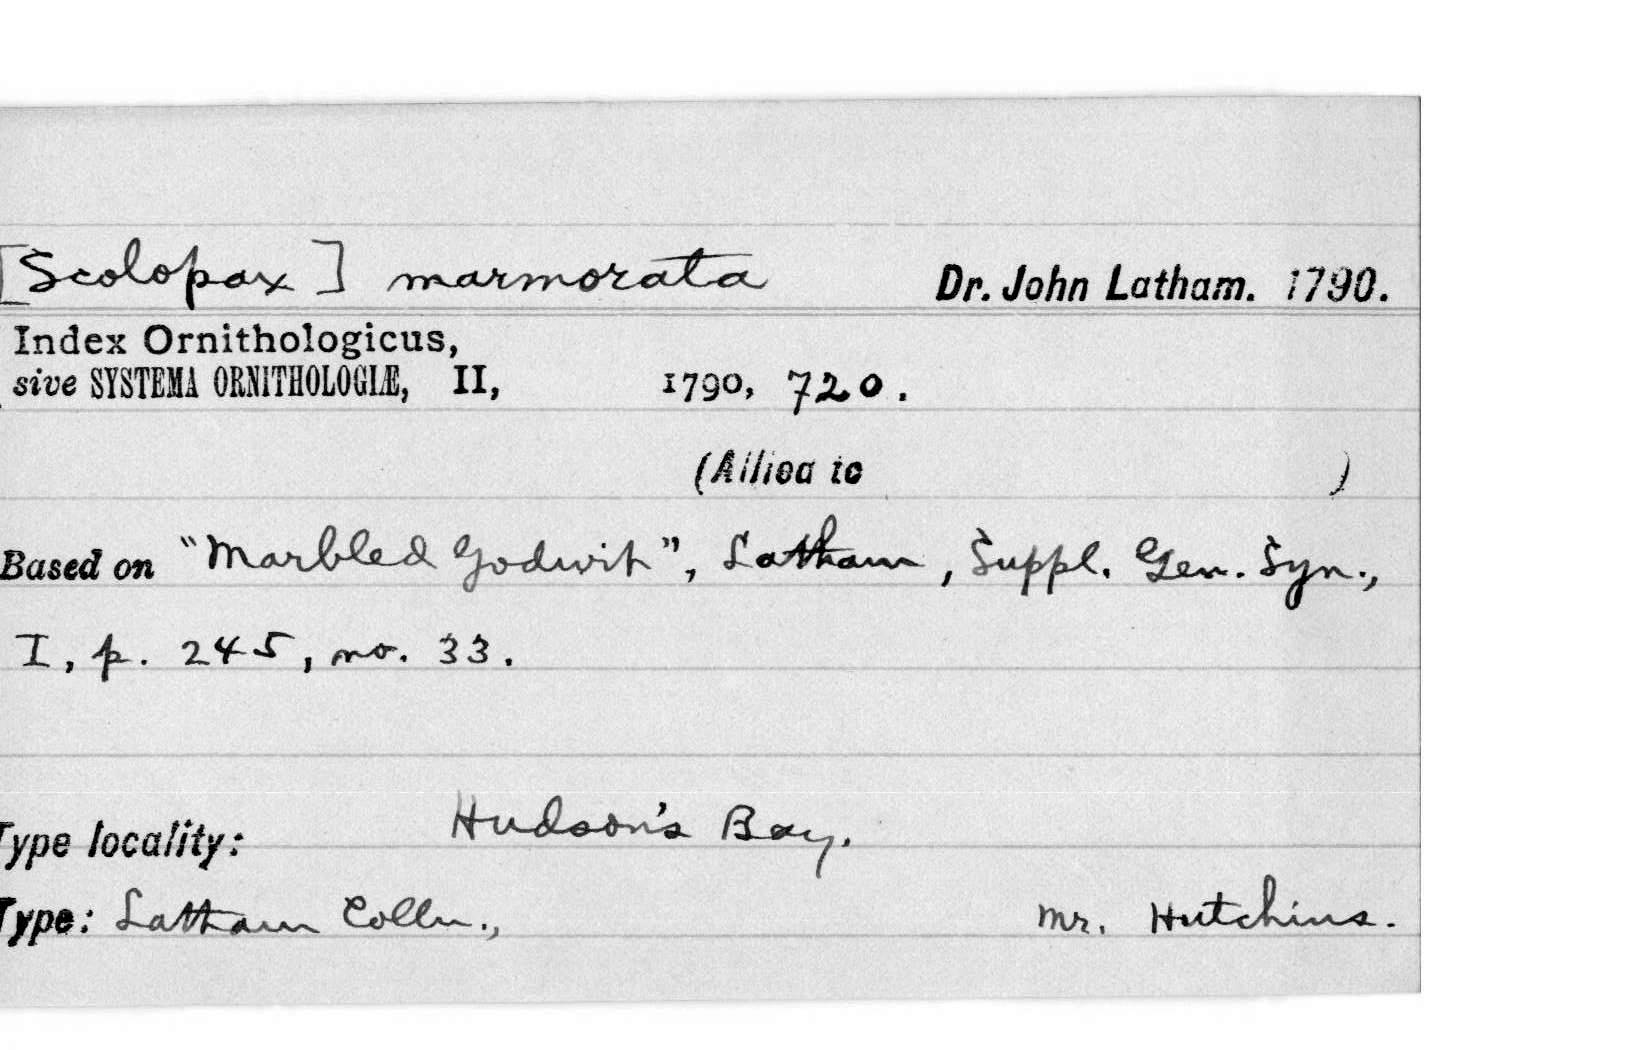 [Scolopax] marmorata Dr. John Latham. 1790.
Index Ornithologicus,
sive SYSTEMA ORNITHOLOGIÆ, II, 1790, 720.
(Allied to )
Based on "Marbled Godwit", Latham, Suppl. Gen. Syn.,
I, p. 245, no. 33.
Type locality: Hudson's Bay.
Type: Latham Colln., Mr. Hutchins.